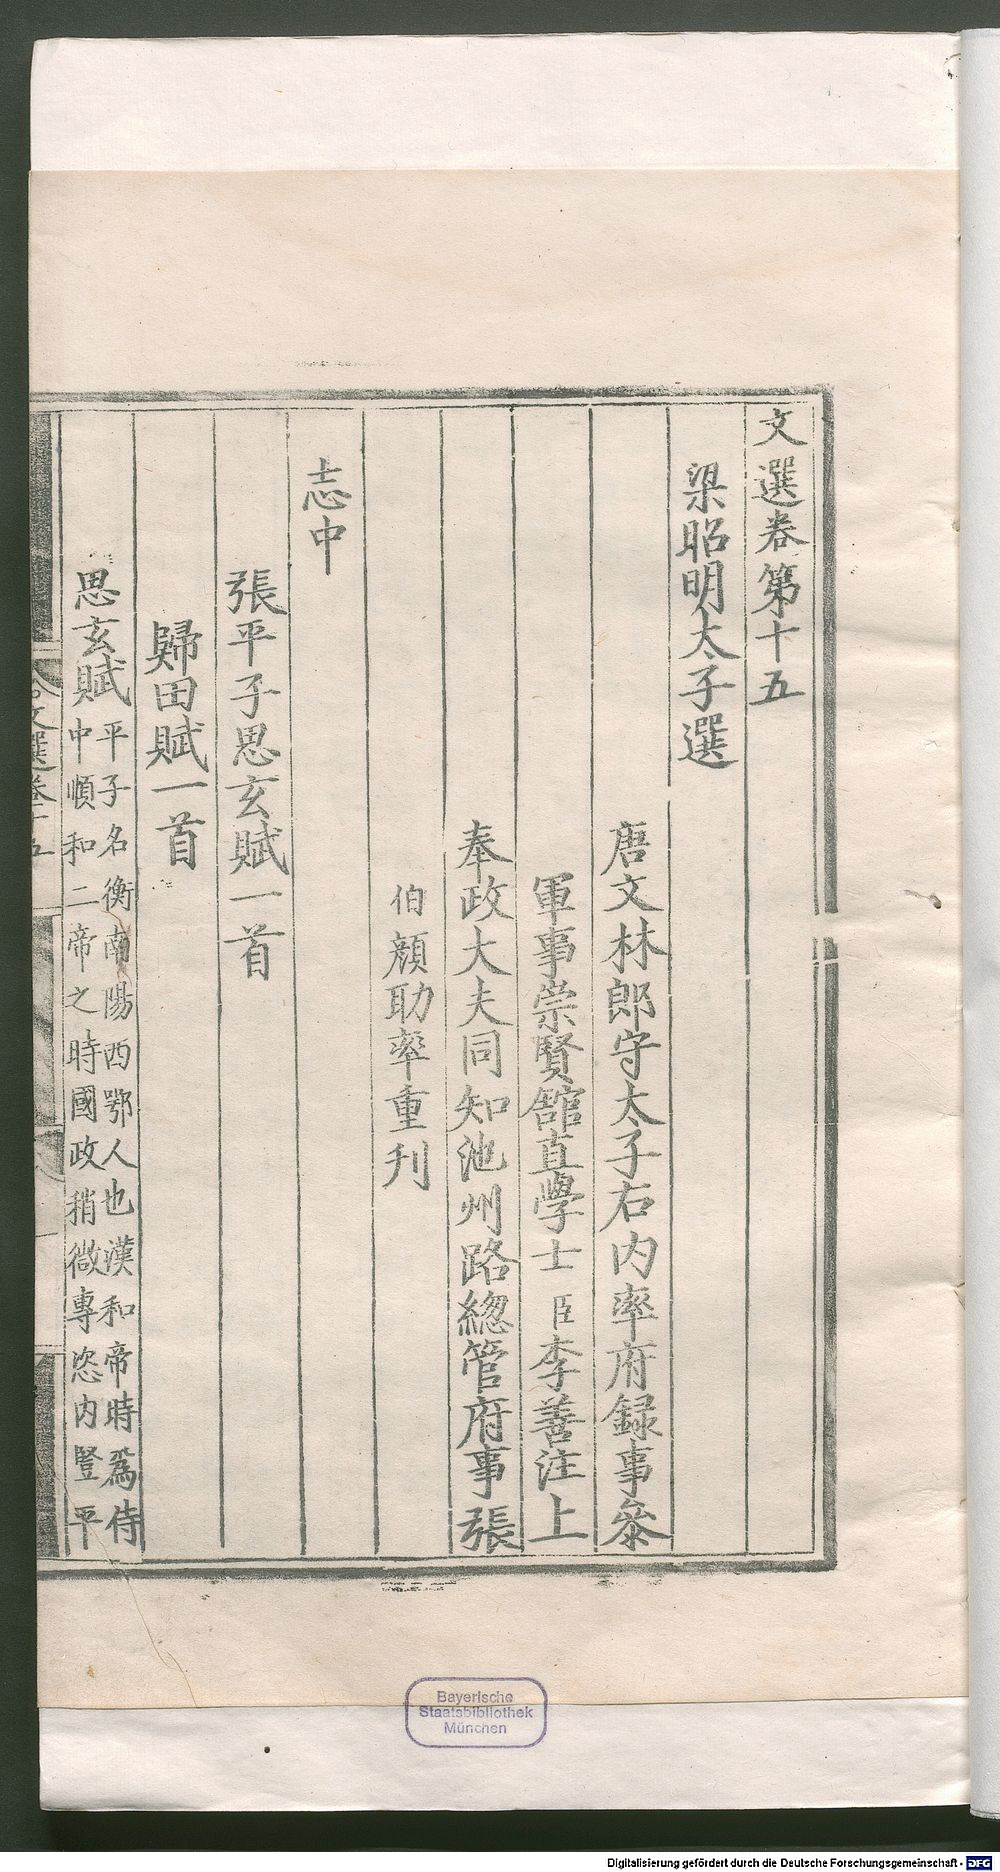 文選卷第十五
梁昭明太子選
唐文林郎守太子右內率府録事參
軍事崇賢館直學士臣李善注上
奉政大夫同知池州路總管府事張
伯顔助率重刊
志中
張平子思玄賦一首
歸田賦一首
思玄賦
平子名衡南陽西鄂人也漢和帝時爲侍
中順和二帝之時國政稍微專恣內豎平
文選卷十五
Bayerische
Staatsbibliothek
München
Digitalisierung gefördert durch die Deutsche Forschungsgemeinschaft - DFG